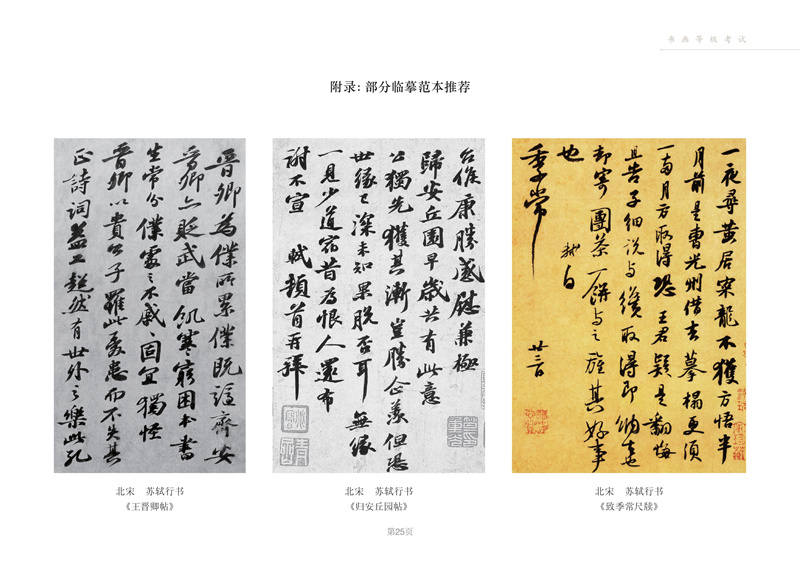 书画等级考试
附录：部分临摹范本推荐
晋卿为仆所累仆既谪齐安
晋卿亦贬武当饥寒穷困本书
生常分仆处之不戚戚固宜独怪
晋卿以贵公子罹此忧患而不失其
正诗词益工超然有世外之乐此孔
北宋 苏轼行书
《王晋卿帖》
台候康胜感慰兼极
归安丘园早岁共有此意
公独先获其渐岂胜企羡但恐
世缘已深未知果脱否耳 无缘
一见少道宿昔为恨人还布
谢不宣 轼顿首再拜
北宋 苏轼行书
《归安丘园帖》
一夜寻黄居寀龙不获方悟半
月前是曹光州借去摹搨更须
一两月方取得恐王君疑是翻悔
且告子细说与才取得即纳去也
却寄团茶一饼与之旌其好事
也 轼白
季常 廿三日
北宋 苏轼行书
《致季常尺牍》
第25页